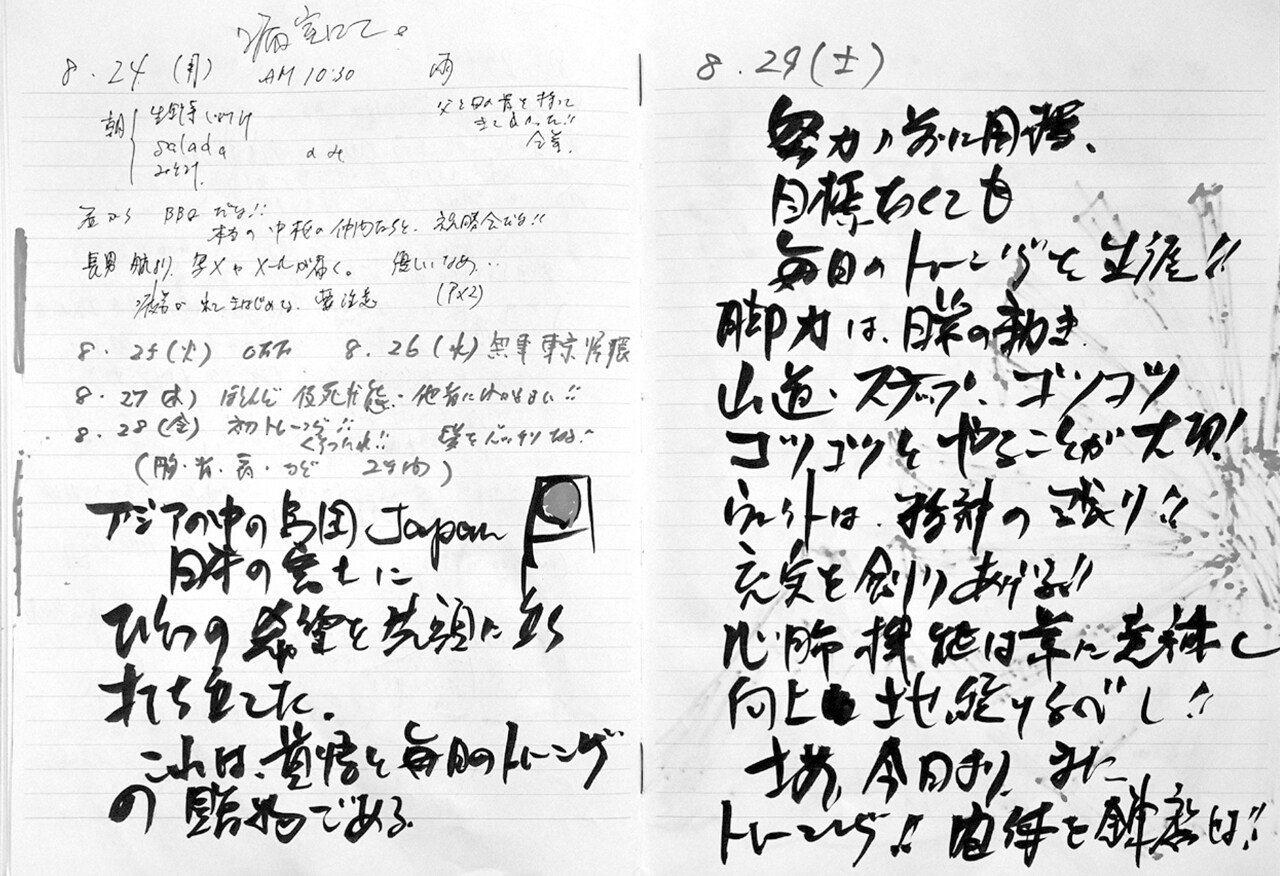 病室にて。
8.24(月) AM 10:30 雨
朝 生野菜
salada
父と母の骨を持って
きてよかった!!
昼から BBQ だよ!!
本当の中枢の仲間たちと、祝勝会だよ!!
長男 航より、写メやメールが届く。 優しいなあ…
疲労が出てきはじめる、要注意 (P×2)
8.25(火) 8.26(水) 無事東京帰還
8.27(木) ほとんど仮死状態・他者にはわからない!!
8.28(金) 初トレーニング!!
くそったれ!!
(胸・背・肩・など 2年内)
アジアの中の島国 Japan
日本の富士に
ひとつの希望を先頭に立ち
打ち立てた。
これは、覚悟と毎日のトレーニング
の賜物である。
8.29(土)
努力の前に目標、
目標なくても
毎日のトレーニングを生涯!!
脚力は、日常の動き
山道・ステップ・ゴツゴツ
コツコツとやることが大切!
ウェイトは、精神の護り!!
充実を創りあげる!!
心肺機能は常に意識し
向上し続けるべし!!
さあ、今日より、また
トレーニング!! 肉体を鍛えろ!!